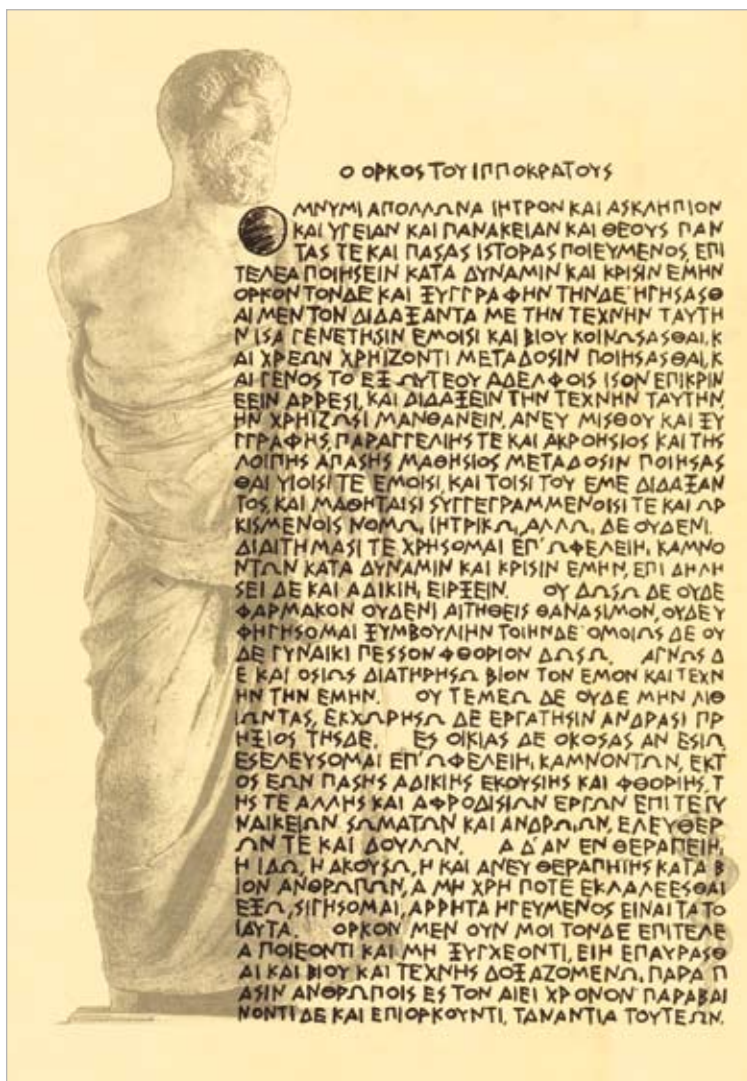 Ο ΟΡΚΟΣ ΤΟΥ ΙΠΠΟΚΡΑΤΟΥΣ
ΟΜΝΥΜΙ ΑΠΟΛΛΩΝΑ ΙΗΤΡΟΝ ΚΑΙ ΑΣΚΛΗΠΙΟΝ
ΚΑΙ ΥΓΕΙΑΝ ΚΑΙ ΠΑΝΑΚΕΙΑΝ ΚΑΙ ΘΕΟΥΣ ΠΑΝ
ΤΑΣ ΤΕ ΚΑΙ ΠΑΣΑΣ ΙΣΤΟΡΑΣ ΠΟΙΕΥΜΕΝΟΣ, ΕΠΙ
ΤΕΛΕΑ ΠΟΙΗΣΕΙΝ ΚΑΤΑ ΔΥΝΑΜΙΝ ΚΑΙ ΚΡΙΣΙΝ ΕΜΗΝ
ΟΡΚΟΝ ΤΟΝΔΕ ΚΑΙ ΞΥΓΓΡΑΦΗΝ ΤΗΝΔΕ ΗΓΗΣΑΣΘ
ΑΙ ΜΕΝ ΤΟΝ ΔΙΔΑΞΑΝΤΑ ΜΕ ΤΗΝ ΤΕΧΝΗΝ ΤΑΥΤΗ
Ν ΙΣΑ ΓΕΝΕΤΗΣΙΝ ΕΜΟΙΣΙ ΚΑΙ ΒΙΟΥ ΚΟΙΝΩΣΑΣΘΑΙ, Κ
ΑΙ ΧΡΕΩΝ ΧΡΗΙΖΟΝΤΙ ΜΕΤΑΔΟΣΙΝ ΠΟΙΗΣΑΣΘΑΙ, Κ
ΑΙ ΓΕΝΟΣ ΤΟ ΕΞ ΩΥΤΕΟΥ ΑΔΕΛΦΟΙΣ ΙΣΟΝ ΕΠΙΚΡΙΝ
ΕΕΙΝ ΑΡΡΕΣΙ, ΚΑΙ ΔΙΔΑΞΕΙΝ ΤΗΝ ΤΕΧΝΗΝ ΤΑΥΤΗΝ,
ΗΝ ΧΡΗΙΖΩΣΙ ΜΑΝΘΑΝΕΙΝ, ΑΝΕΥ ΜΙΣΘΟΥ ΚΑΙ ΞΥ
ΓΓΡΑΦΗΣ, ΠΑΡΑΓΓΕΛΙΗΣ ΤΕ ΚΑΙ ΑΚΡΟΗΣΙΟΣ ΚΑΙ ΤΗΣ
ΛΟΙΠΗΣ ΑΠΑΣΗΣ ΜΑΘΗΣΙΟΣ ΜΕΤΑΔΟΣΙΝ ΠΟΙΗΣΑΣ
ΘΑΙ ΥΙΟΙΣΙ ΤΕ ΕΜΟΙΣΙ, ΚΑΙ ΤΟΙΣΙ ΤΟΥ ΕΜΕ ΔΙΔΑΞΑΝ
ΤΟΣ, ΚΑΙ ΜΑΘΗΤΑΙΣΙ ΣΥΓΓΕΓΡΑΜΜΕΝΟΙΣΙ ΤΕ ΚΑΙ ΩΡ
ΚΙΣΜΕΝΟΙΣ ΝΟΜΩ, ΙΗΤΡΙΚΩ, ΑΛΛΩ, ΔΕ ΟΥΔΕΝΙ.
ΔΙΑΙΤΗΜΑΣΙ ΤΕ ΧΡΗΣΟΜΑΙ ΕΠ' ΩΦΕΛΕΙΗ, ΚΑΜΝΟ
ΝΤΩΝ ΚΑΤΑ ΔΥΝΑΜΙΝ ΚΑΙ ΚΡΙΣΙΝ ΕΜΗΝ, ΕΠΙ ΔΗΛΗ
ΣΕΙ ΔΕ ΚΑΙ ΑΔΙΚΙΗ, ΕΙΡΞΕΙΝ. ΟΥ ΔΩΣΩ ΔΕ ΟΥΔΕ
ΦΑΡΜΑΚΟΝ ΟΥΔΕΝΙ ΑΙΤΗΘΕΙΣ ΘΑΝΑΣΙΜΟΝ, ΟΥΔΕ Υ
ΦΗΓΗΣΟΜΑΙ ΞΥΜΒΟΥΛΙΗΝ ΤΟΙΗΝΔΕ ΟΜΟΙΩΣ ΔΕ ΟΥ
ΔΕ ΓΥΝΑΙΚΙ ΠΕΣΣΟΝ ΦΘΟΡΙΟΝ ΔΩΣΩ. ΑΓΝΩΣ Δ
Ε ΚΑΙ ΟΣΙΩΣ ΔΙΑΤΗΡΗΣΩ ΒΙΟΝ ΤΟΝ ΕΜΟΝ ΚΑΙ ΤΕΧΝ
ΗΝ ΤΗΝ ΕΜΗΝ. ΟΥ ΤΕΜΕΩ ΔΕ ΟΥΔΕ ΜΗΝ ΛΙΘ
ΙΩΝΤΑΣ, ΕΚΧΩΡΗΣΩ ΔΕ ΕΡΓΑΤΗΣΙΝ ΑΝΔΡΑΣΙ ΠΡ
ΗΞΙΟΣ ΤΗΣΔΕ. ΕΣ ΟΙΚΙΑΣ ΔΕ ΟΚΟΣΑΣ ΑΝ ΕΣΙΩ,
ΕΣΕΛΕΥΣΟΜΑΙ ΕΠ' ΩΦΕΛΕΙΗ, ΚΑΜΝΟΝΤΩΝ, ΕΚΤ
ΟΣ ΕΩΝ ΠΑΣΗΣ ΑΔΙΚΙΗΣ ΕΚΟΥΣΙΗΣ ΚΑΙ ΦΘΟΡΙΗΣ, Τ
ΗΣ ΤΕ ΑΛΛΗΣ ΚΑΙ ΑΦΡΟΔΙΣΙΩΝ ΕΡΓΩΝ ΕΠΙ ΤΕ ΓΥ
ΝΑΙΚΕΙΩΝ ΣΩΜΑΤΩΝ ΚΑΙ ΑΝΔΡΩΙΩΝ, ΕΛΕΥΘΕΡ
ΩΝ ΤΕ ΚΑΙ ΔΟΥΛΩΝ. Α Δ' ΑΝ ΕΝ ΘΕΡΑΠΕΙΗ,
Η ΙΔΩ, Η ΑΚΟΥΣΩ, Η ΚΑΙ ΑΝΕΥ ΘΕΡΑΠΗΙΗΣ ΚΑΤΑ Β
ΙΟΝ ΑΝΘΡΩΠΩΝ, Α ΜΗ ΧΡΗ ΠΟΤΕ ΕΚΛΑΛΕΕΣΘΑΙ
ΕΞΩ, ΣΙΓΗΣΟΜΑΙ, ΑΡΡΗΤΑ ΗΓΕΥΜΕΝΟΣ ΕΙΝΑΙ ΤΑ ΤΟ
ΙΑΥΤΑ. ΟΡΚΟΝ ΜΕΝ ΟΥΝ ΜΟΙ ΤΟΝΔΕ ΕΠΙΤΕΛΕ
Α ΠΟΙΕΟΝΤΙ ΚΑΙ ΜΗ ΞΥΓΧΕΟΝΤΙ, ΕΙΗ ΕΠΑΥΡΑΣΘ
ΑΙ ΚΑΙ ΒΙΟΥ ΚΑΙ ΤΕΧΝΗΣ ΔΟΞΑΖΟΜΕΝΩ, ΠΑΡΑ Π
ΑΣΙΝ ΑΝΘΡΩΠΟΙΣ ΕΣ ΤΟΝ ΑΙΕΙ ΧΡΟΝΟΝ ΠΑΡΑΒΑΙ
ΝΟΝΤΙ ΔΕ ΚΑΙ ΕΠΙΟΡΚΟΥΝΤΙ, ΤΑΝΑΝΤΙΑ ΤΟΥΤΕΩΝ.